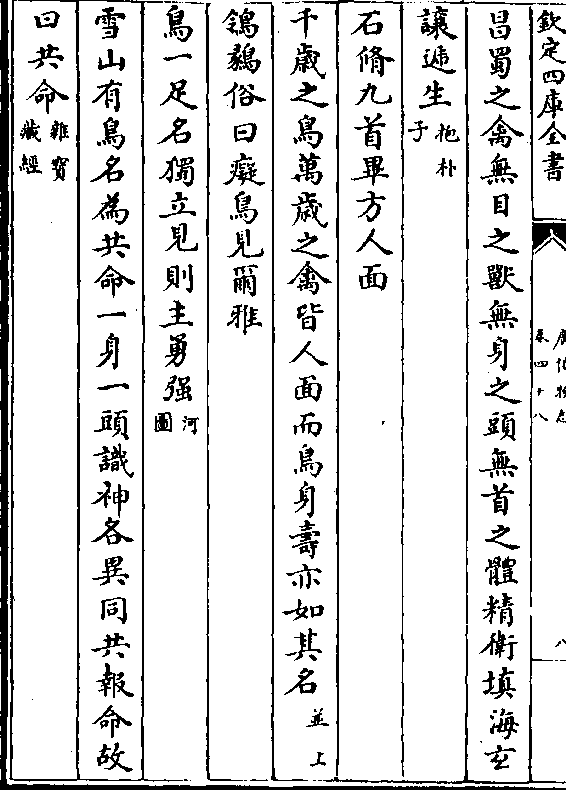 欽定四庫全書
廣博物志
卷四十八
八
昌蜀之禽無目之獸無身之頭無首之體精衛填海玄
讓遞生抱朴子
石脩九首畢方人面
千歳之鳥萬歳之禽皆人面而鳥身壽亦如其名並上
鵅鶨俗曰癡鳥見爾雅
鳥一足名獨立見則主勇强河圖
雪山有鳥名為共命一身一頭識神各異同共報命故
曰共命雜寳藏經